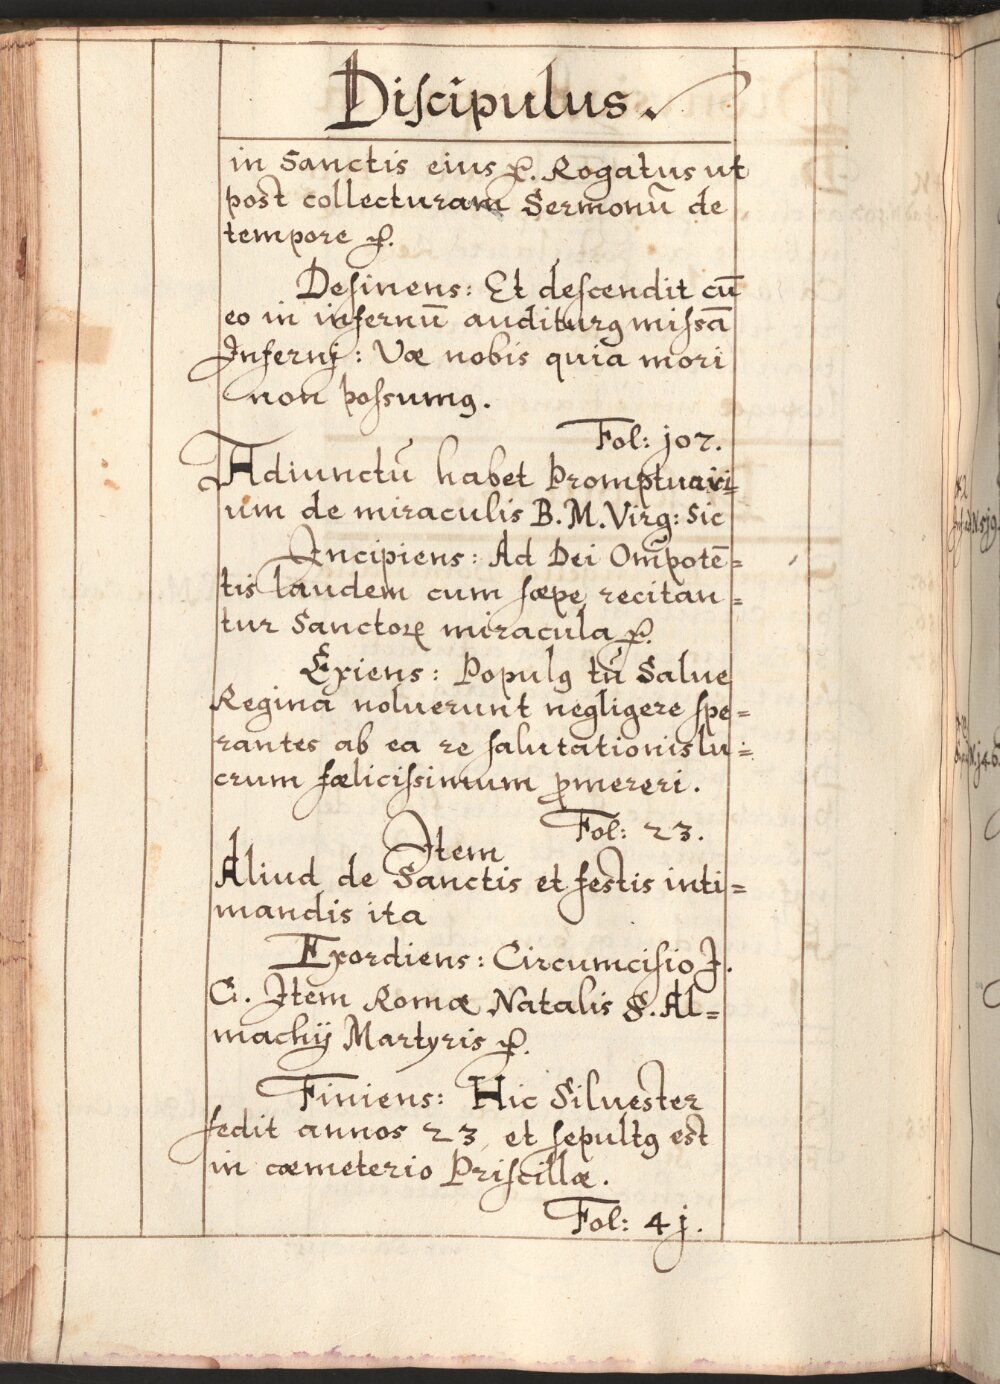 Diſcipulus.
in Sanctis eius ꝛc. Rogatus ut
post collecturam Sermonū de
tempore ꝛc.
Deſinens: Et deſcendit cū
eo in infernū auditurꝰ miſsā
Infernj: Væ nobis quia mori
non poſsumꝰ.
Fol: j07.
Adiunctū habet Promptuari=
um de miraculis B. M. Virg: Sic
Incipiens: Ad Dei Om̄potē=
tis laudem cum ſæpe recitan=
tur Sanctoꝝ miracula ꝛc.
Exiens: Populꝰ tū Salue
Regina noluerunt negligere ſpe=
rantes ab ea re ſalutationis lu=
crum fœliciſsimum ꝓmereri.
Fol: 23.
Item
Aliud de Sanctis et festis inti=
mandis ita
Exordiens: Circumciſio J.
C. Item Romæ Natalis S. Al=
machij Martyris ꝛc.
Finiens: Hic Siluester
ſedit annos 23 et ſepultꝰ est
in cœmeterio Priſcillæ.
Fol: 4j.